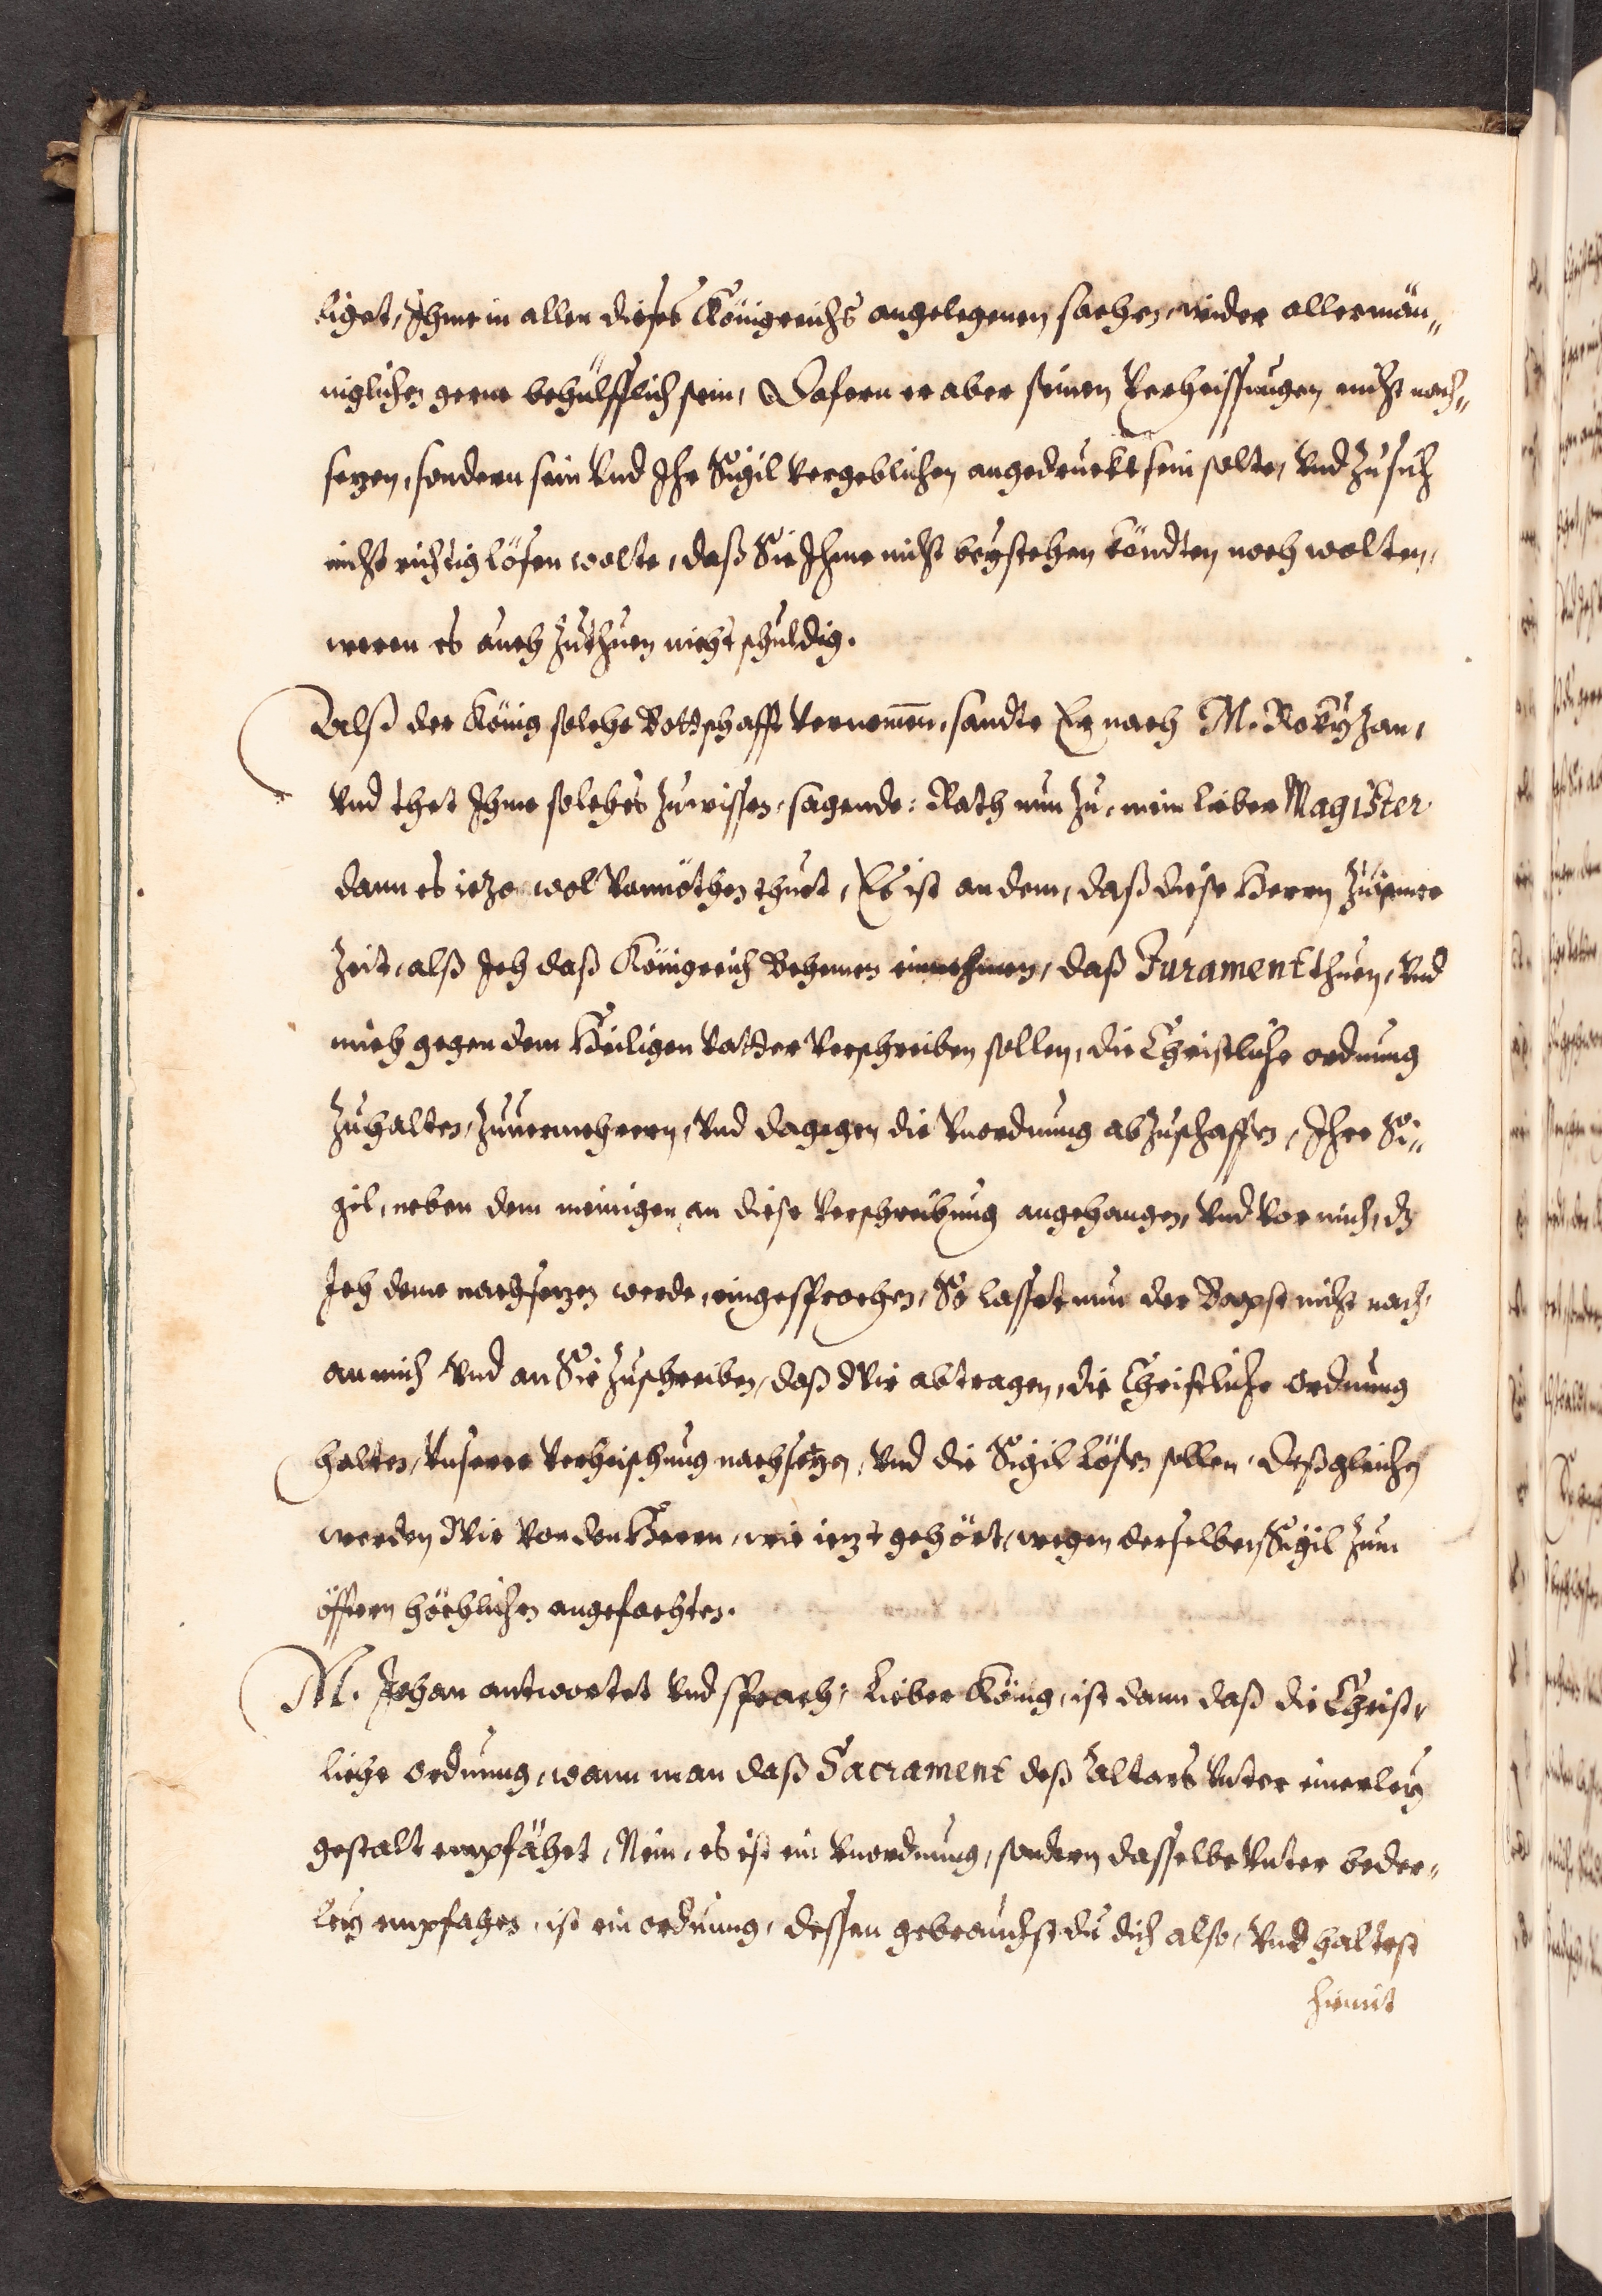 liget, Ihme in allen dieses Königreichs angelegenen sachen, wider allermän„
niglichen gerne behülfflich sein, Dafern er aber seinen Verheissungen nicht nach„
sezen, sondern sein vnd Ihr Sigil vergeblichen angedruckt sein solte, vnd zu sich
nicht richtig lösen wolte, daß Sie Ihme nicht beystehen köndten noch wolten,
weren es auch zuthuen nicht schuldig.
Alß der König solche Bottschafft vernomen, sandte Er nach M. Rokyzan,
vnd thet Ihme solches zuwissen, sagende: Rath nun zu, mein lieber Magister
dann es iezo wol vonnöthen thuet, Es ist an dem, daß diese Herrn zu
Zeit, alß Ich daß Königreich Behemen einnehmen, daß Jurament thuen, vnd
mich gegen dem Heiligen Vatter verschreiben sollen, die Christliche ordnung
zuhalten, zuuermehrern, vnd dagegen die vnordnung abzuschaffen, Ihre Si„
gil, neben dem meinigen, an diese Verschreibung angehangen, vnd vor mich, dz
Ich deme nachsezen werde, eingesprochen, So lasset nun der Bapst nicht nach,
an mich vnd an Sie zuschreiben, daß Wir abtragen, die Christliche ordnung
halten, vnserer Verheischung nachsetzen, vnd die Sigil lösen sollen, deßgleichen
werden Wir von den Herrn, wie iezt gehört, wegen derselben Sigil zum
öfftern höchlichen angefochten.
M. Johan antwortet vnd sprach: Lieber König, ist dann daß die Christ„
liche ordnung, wann man daß Sacrament deß Altars vnter einerley
gestalt empfähet, Nein, es ist ein vnordnung, sondern dasselbe vnter beder„
ley empfahen, ist ein ordnung, dessen gebrauchst du dich also, vnd haltest
hiemit